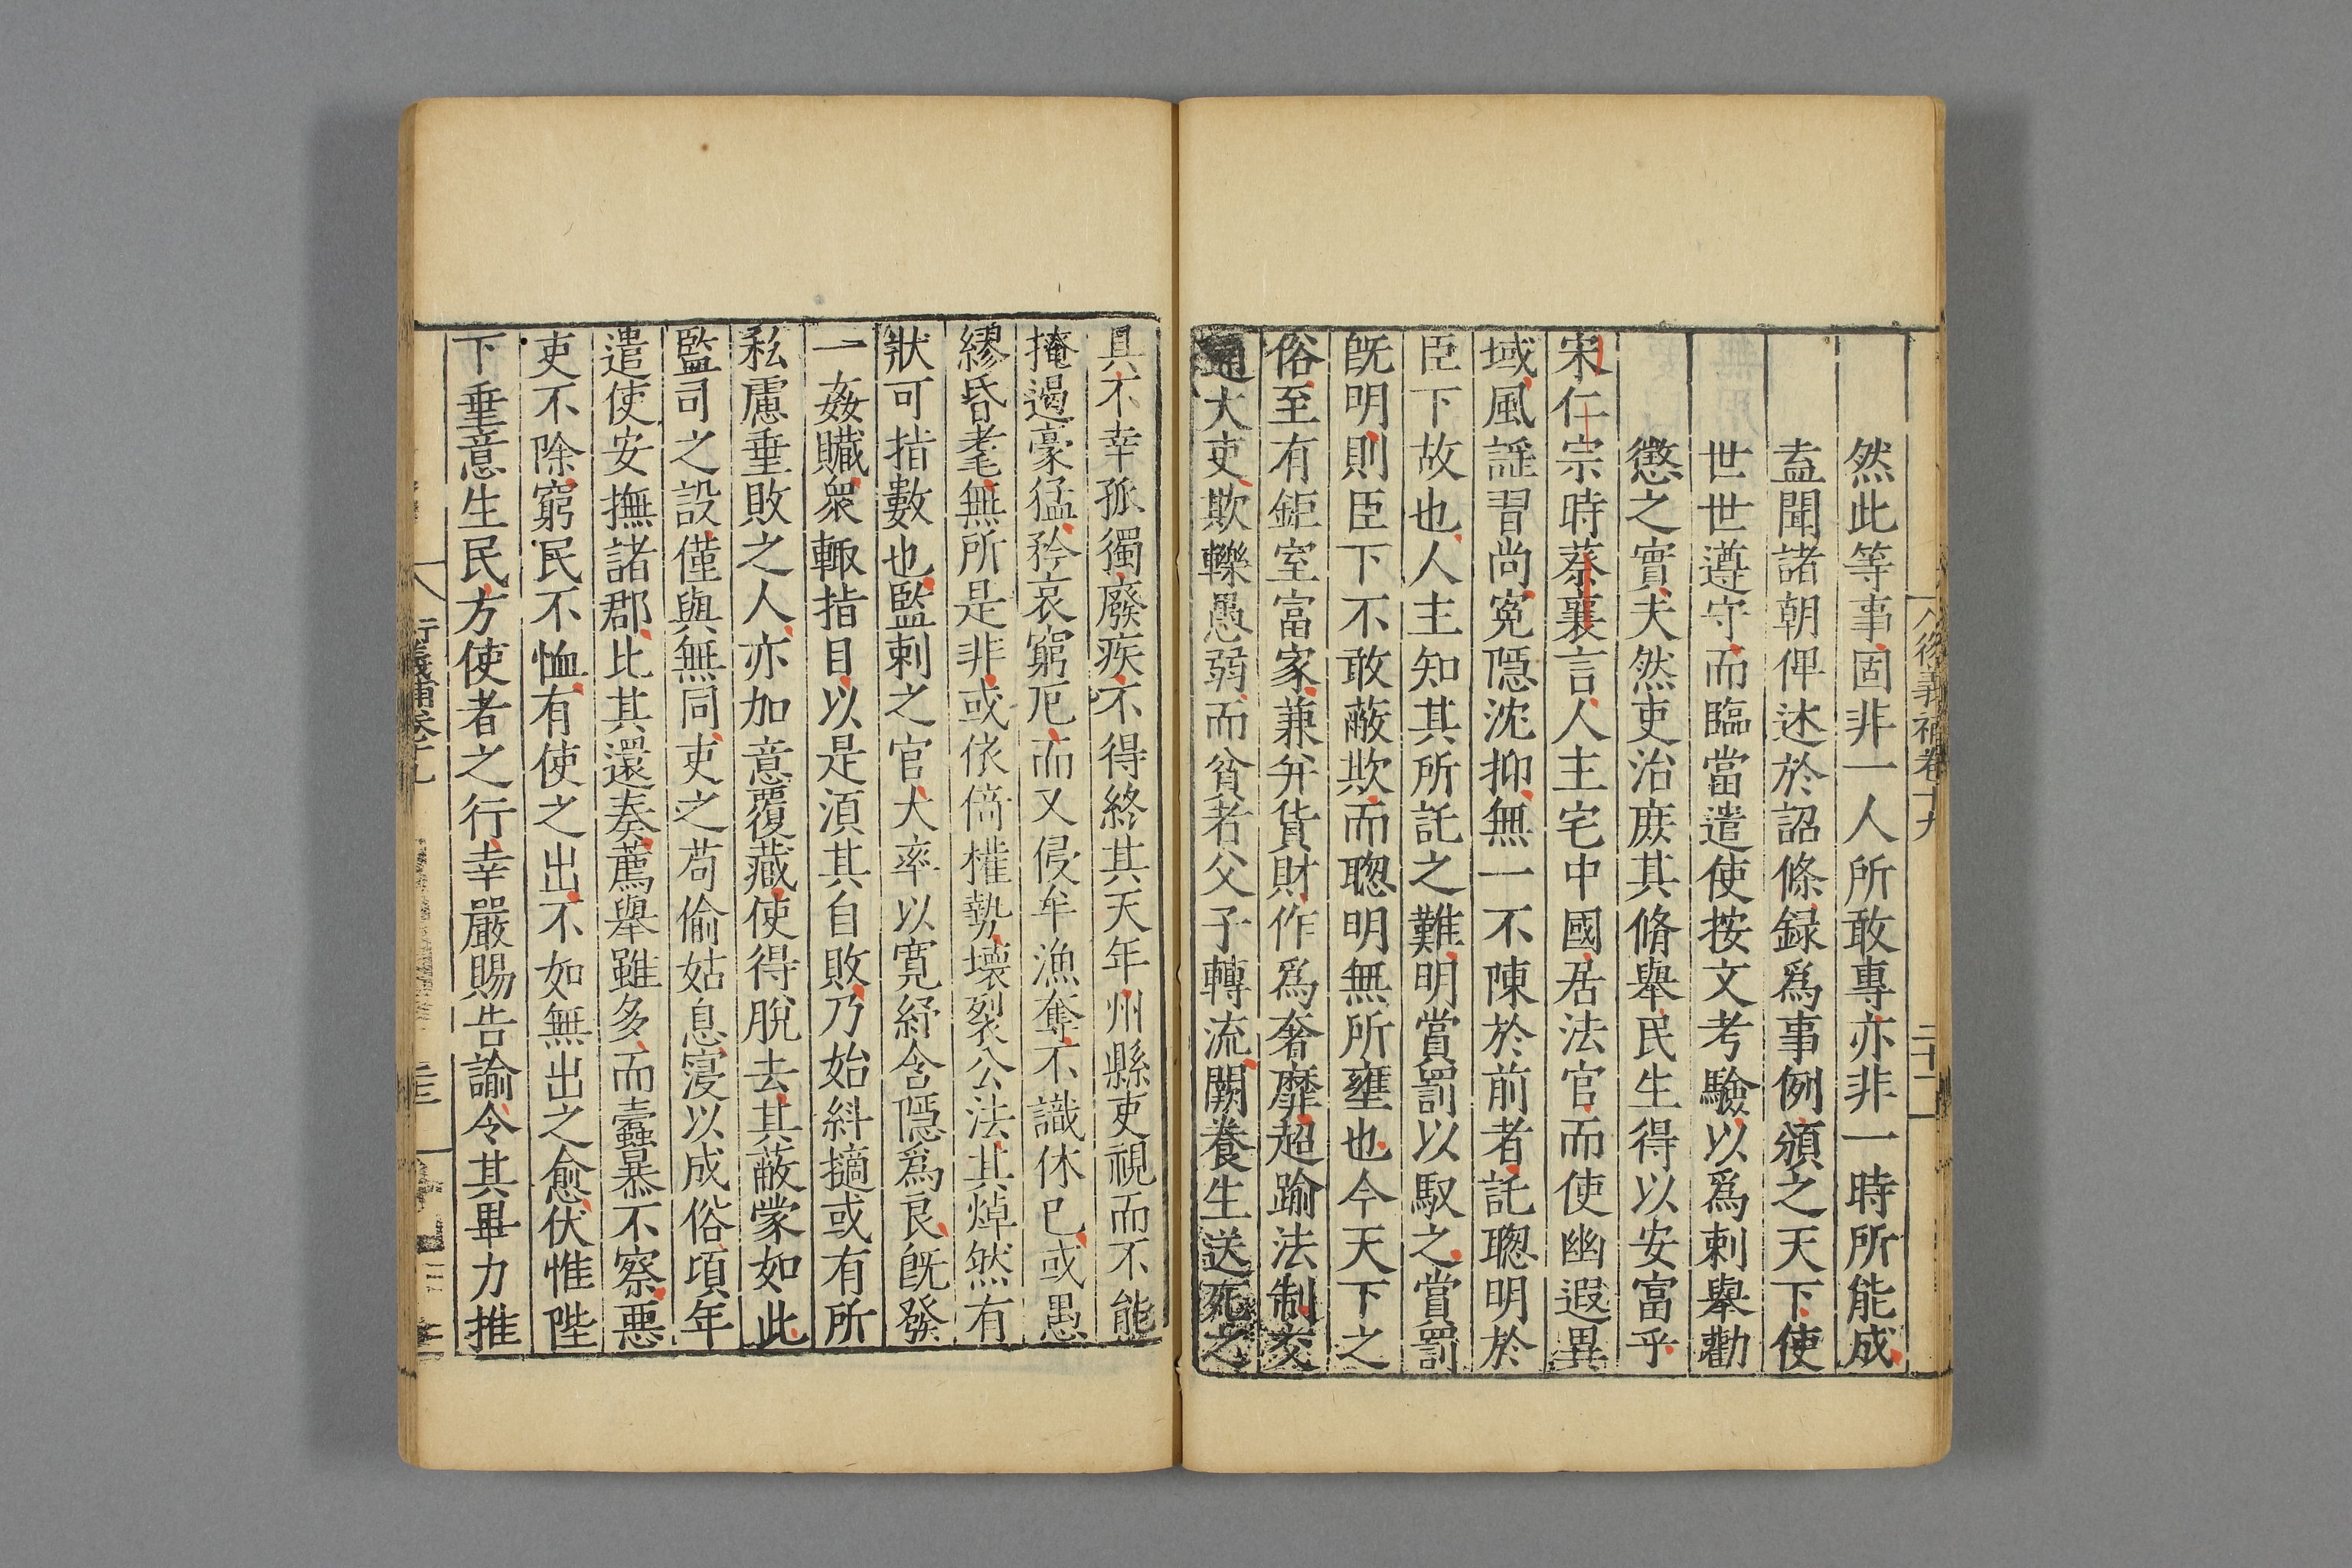 然此等事固非一人所敢專亦非一時所能成
盍聞諸朝俾述於詔條録爲事例頒之天下使
世世遵守而臨當遣使按文考驗以爲刺舉勸
懲之實夫然吏治庶其脩舉民生得以安富乎
宋仁宗時蔡襄言人主宅中國居法官而使幽遐異
域風謡習尚寃隱沈抑無一不陳於前者託聰明於
臣下故也人主知其所託之難明賞罰以馭之賞罰
旣明則臣下不敢蔽欺而聰明無所壅也今天下之
俗至有鉅室富家兼并貨財作爲奢靡超踰法制交
通大吏欺轢愚弱而貧者父子轉流闕養生送死之
具不幸孤獨廢疾不得終其天年州縣吏視而不能
掩遏豪猛矜哀窮厄而又侵牟漁奪不識休已或愚
繆昏耄無所是非或依倚權勢壊裂公法其焯然有
狀可指數也監刺之官大率以寛紓含隱爲良旣發
一姦贓衆輒指目以是須其自敗乃始糾擿或有所
私慮垂敗之人亦加意覆藏使得脫去其蔽蒙如此
監司之設僅與無同吏之苟偷姑息寖以成俗頃年
遣使安撫諸郡比其還奏薦舉雖多而蠹暴不察悪
吏不除窮民不恤有使之出不如無出之愈伏惟陛
下垂意生民方使者之行幸嚴賜告諭令其畢力推